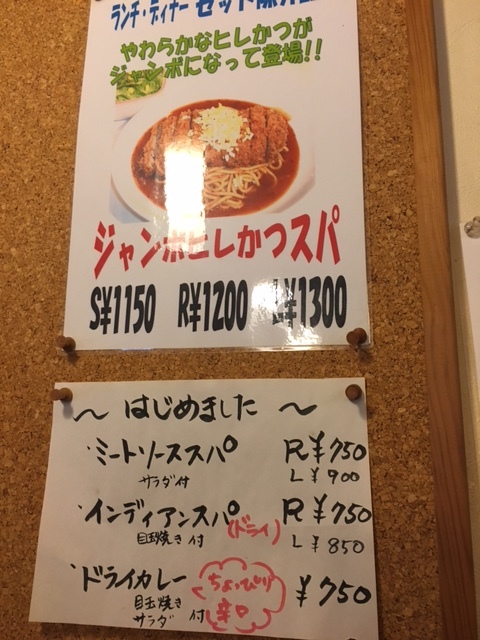 ランチ・ディナー セット
やわらかなヒレかつが
ジャンボになって登場!!
ジャンボヒレかつスパ
S¥1150 R¥1200 L¥1300
～ はじめました ～
・ミートソーススパ R ¥750
サラダ付 L ¥900
・インディアンスパ (ドライ) R ¥750
目玉焼き付 L ¥850
・ドライカレー ちょっぴり辛口 ¥750
目玉焼き
サラダ 付